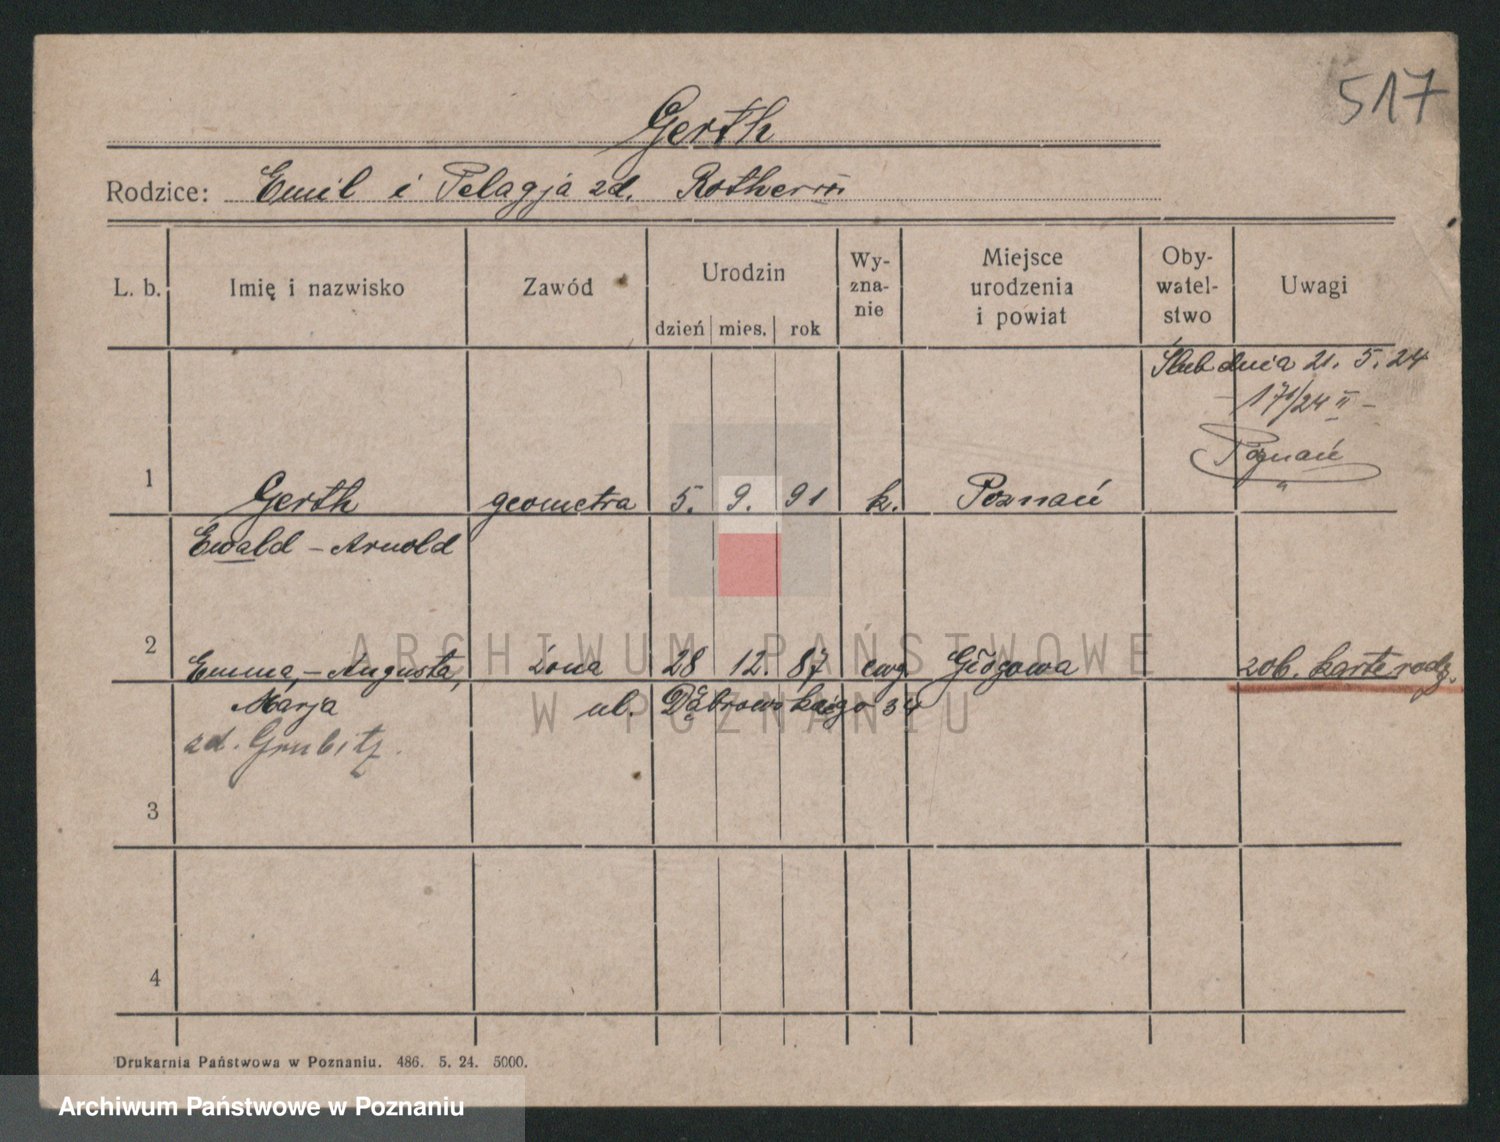 517
Gerth
Rodzice: Emil i Pelagja zd.
L. b. Imię i nazwisko Zawód Urodzin dzień mies. rok Wy-zna-nie Miejsce urodzenia i powiat Oby-watel-stwo Uwagi
Ślub dnia 21. 5. 24
/24 II -
Poznań
1 Gerth geometra 5. 9. 91 k. Poznań
Ewald - Arnold
2 Emma, - Augusta, żona 28 12. 87 ewg Głogowa zob. kartę rodz.
Marja ul. Dąbrowskiego 34
zd. Grubitz.
3
4
Drukarnia Państwowa w Poznaniu. 486. 5. 24. 5000.
ARCHIWUM PAŃSTWOWE
W POZNANIU
Archiwum Państwowe w Poznaniu